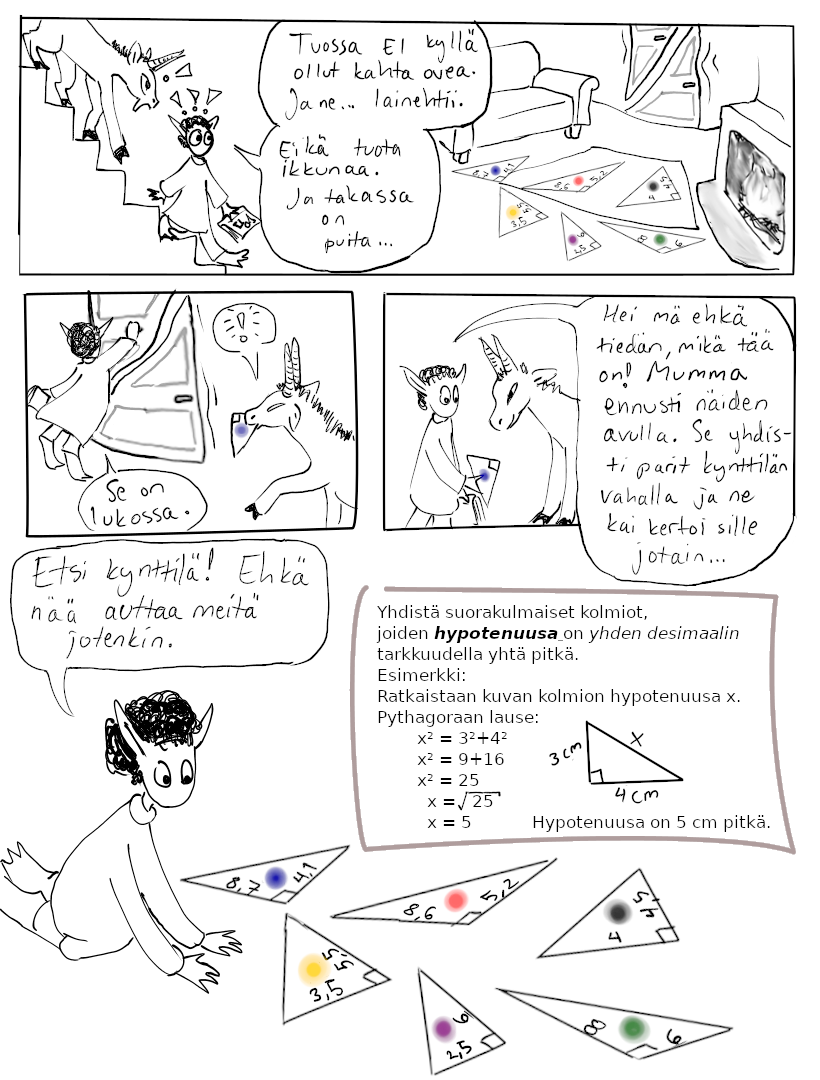 Tuossa EI kyllä
ollut kahta ovea.
Ja ne... lainehtii.
Eikä tuota
ikkunaa.
Ja takassa
on
puita...
8,7 4,1
8,6 5,2
4 4,5
3,5 5,5
2,5 6
8 6
!
Se on
lukossa.
Hei mä ehkä
tiedän, mikä tää
on! Mumma
ennusti näiden
avulla. Se yhdis-
ti parit kynttilän
vahalla ja ne
kai kertoi sille
jotain...
Etsi kynttilä! Ehkä
nää auttaa meitä
jotenkin.
Yhdistä suorakulmaiset kolmiot,
joiden hypotenuusa on yhden desimaalin
tarkkuudella yhtä pitkä.
Esimerkki:
Ratkaistaan kuvan kolmion hypotenuusa x.
Pythagoraan lause:
x² = 3²+4²
x² = 9+16
x² = 25
x = √25
x = 5
3 cm x
4 cm
Hypotenuusa on 5 cm pitkä.
8,7 4,1
8,6 5,2
4 4,5
3,5 5,5
2,5 6
8 6